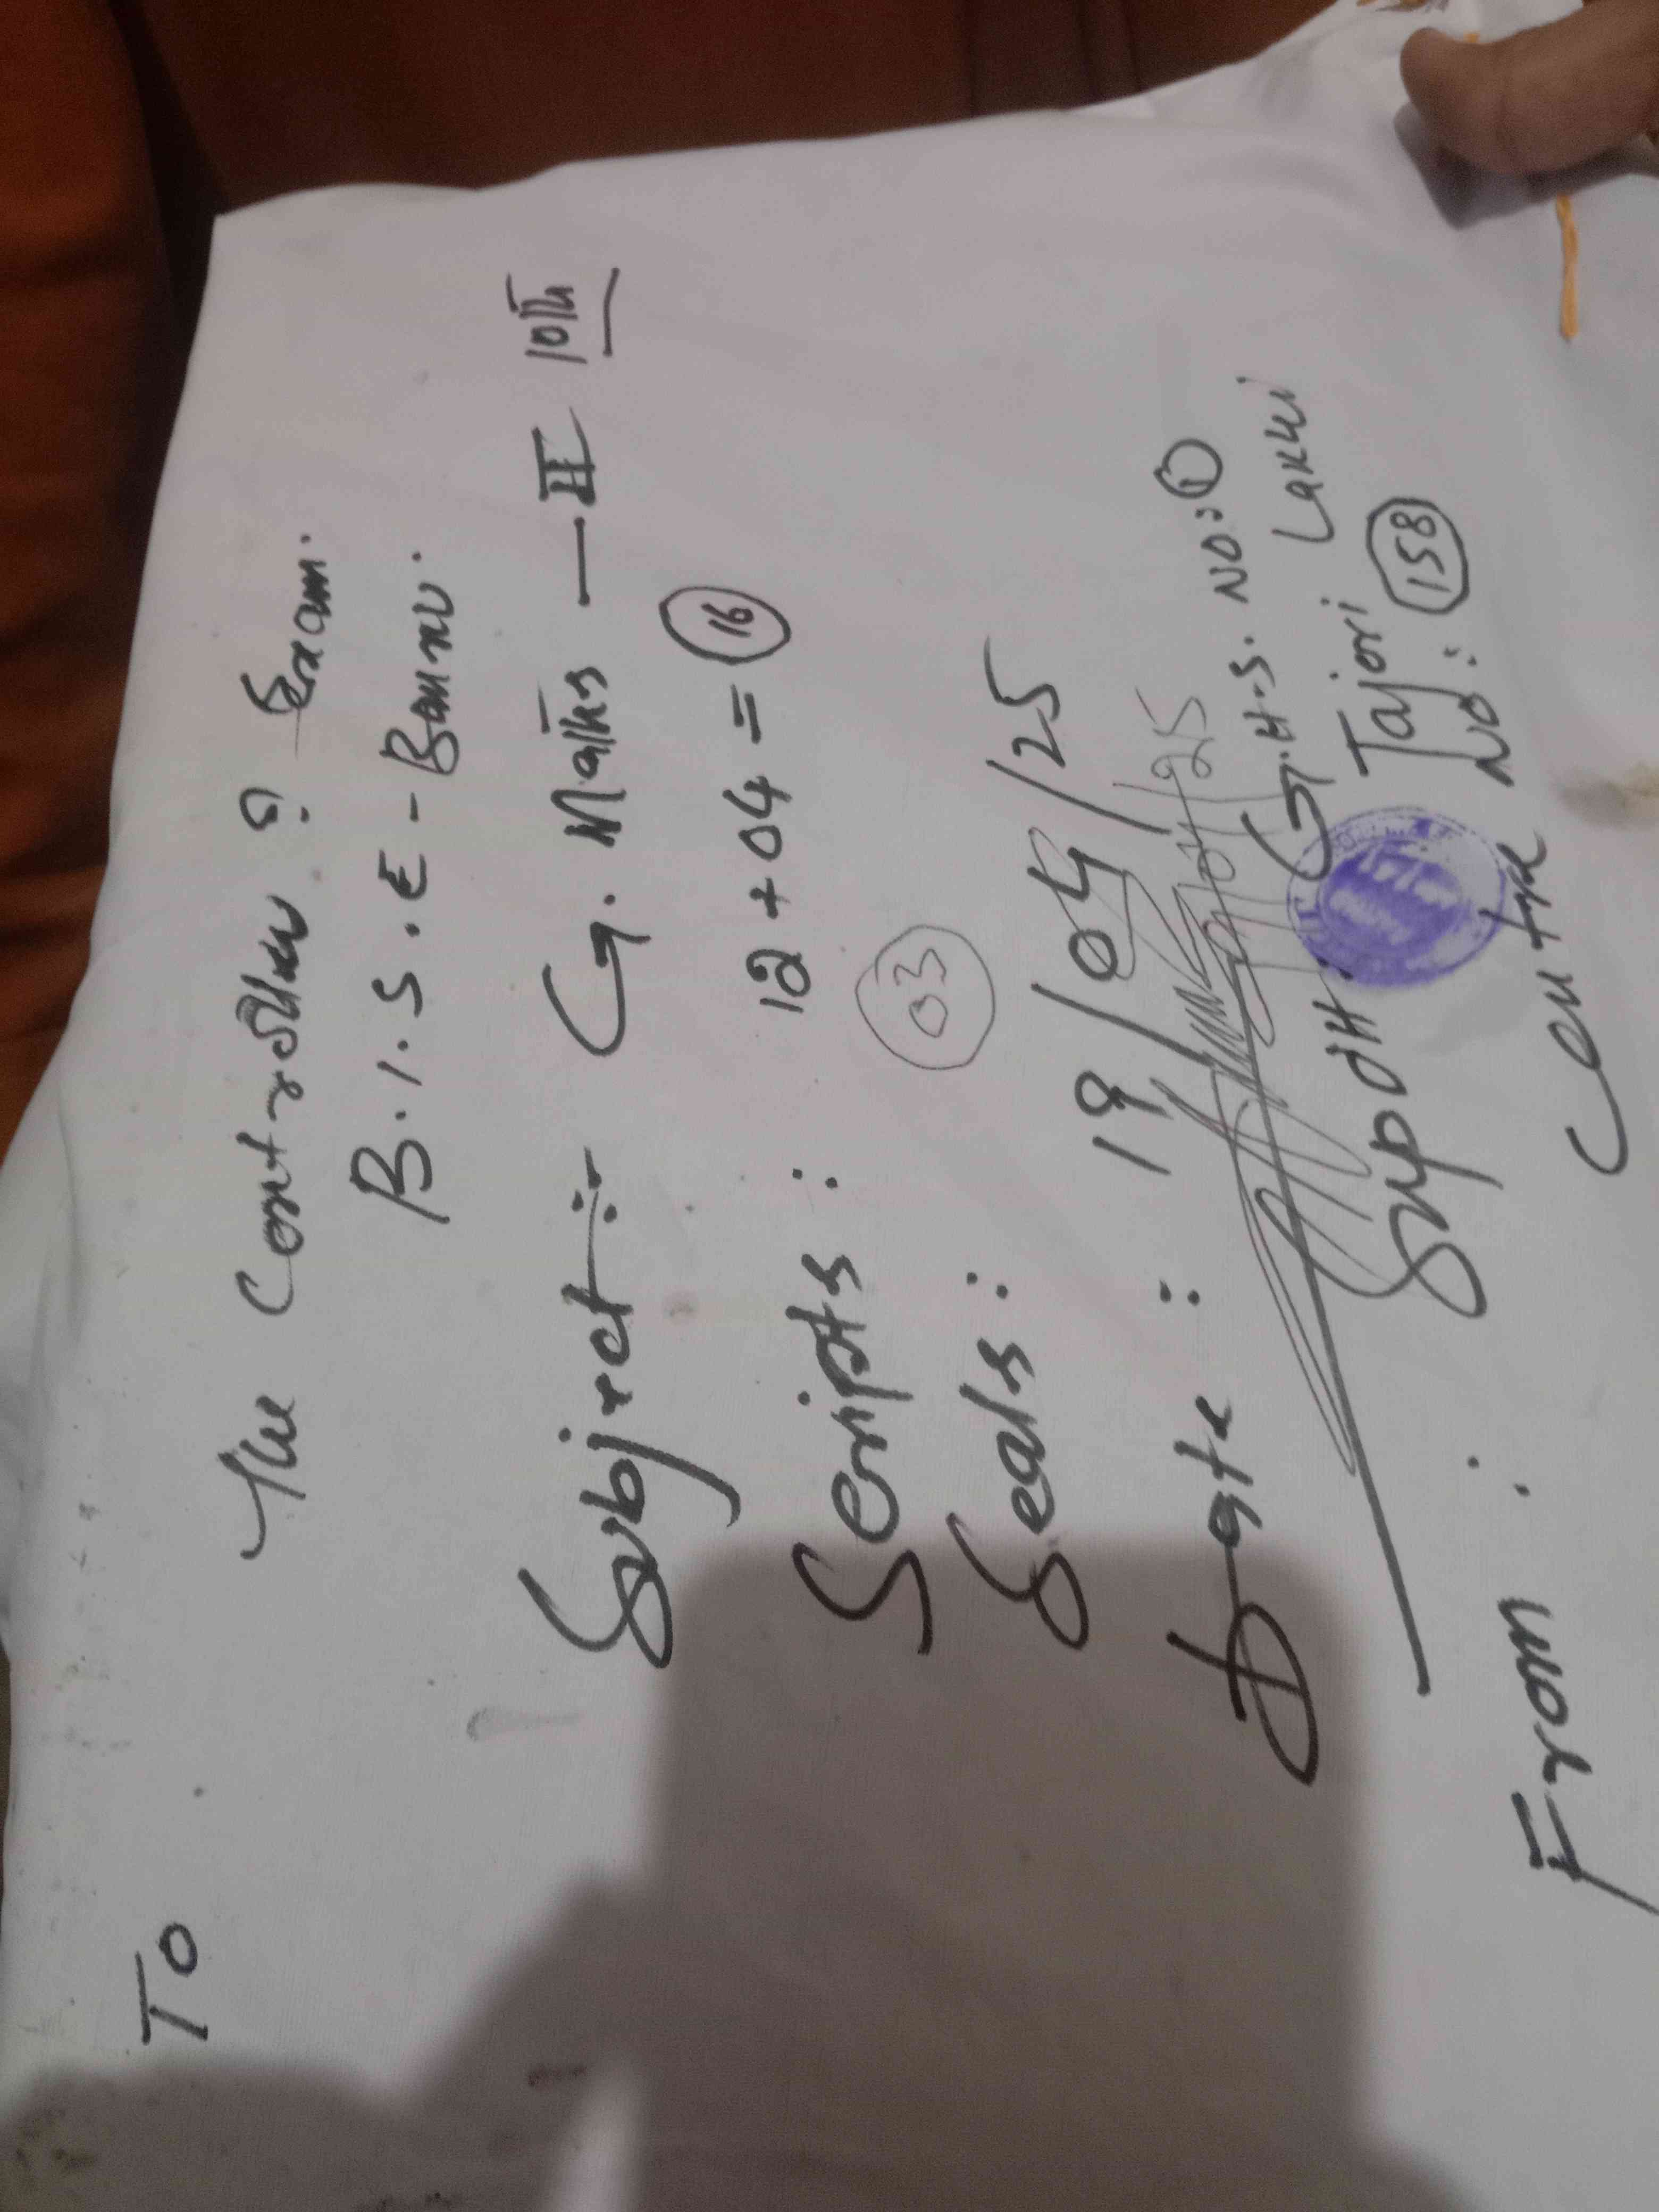 To
The Controller of Exam.
B.I.S.E - Bannu.
Subject:- G. Maths — II 10th
Scripts : 12 + 04 = 16
Seals : 03
Date : 19/04/25
From : Supdtt: G.H.S. No: 1
Tajori Lakki
Centre No: 158